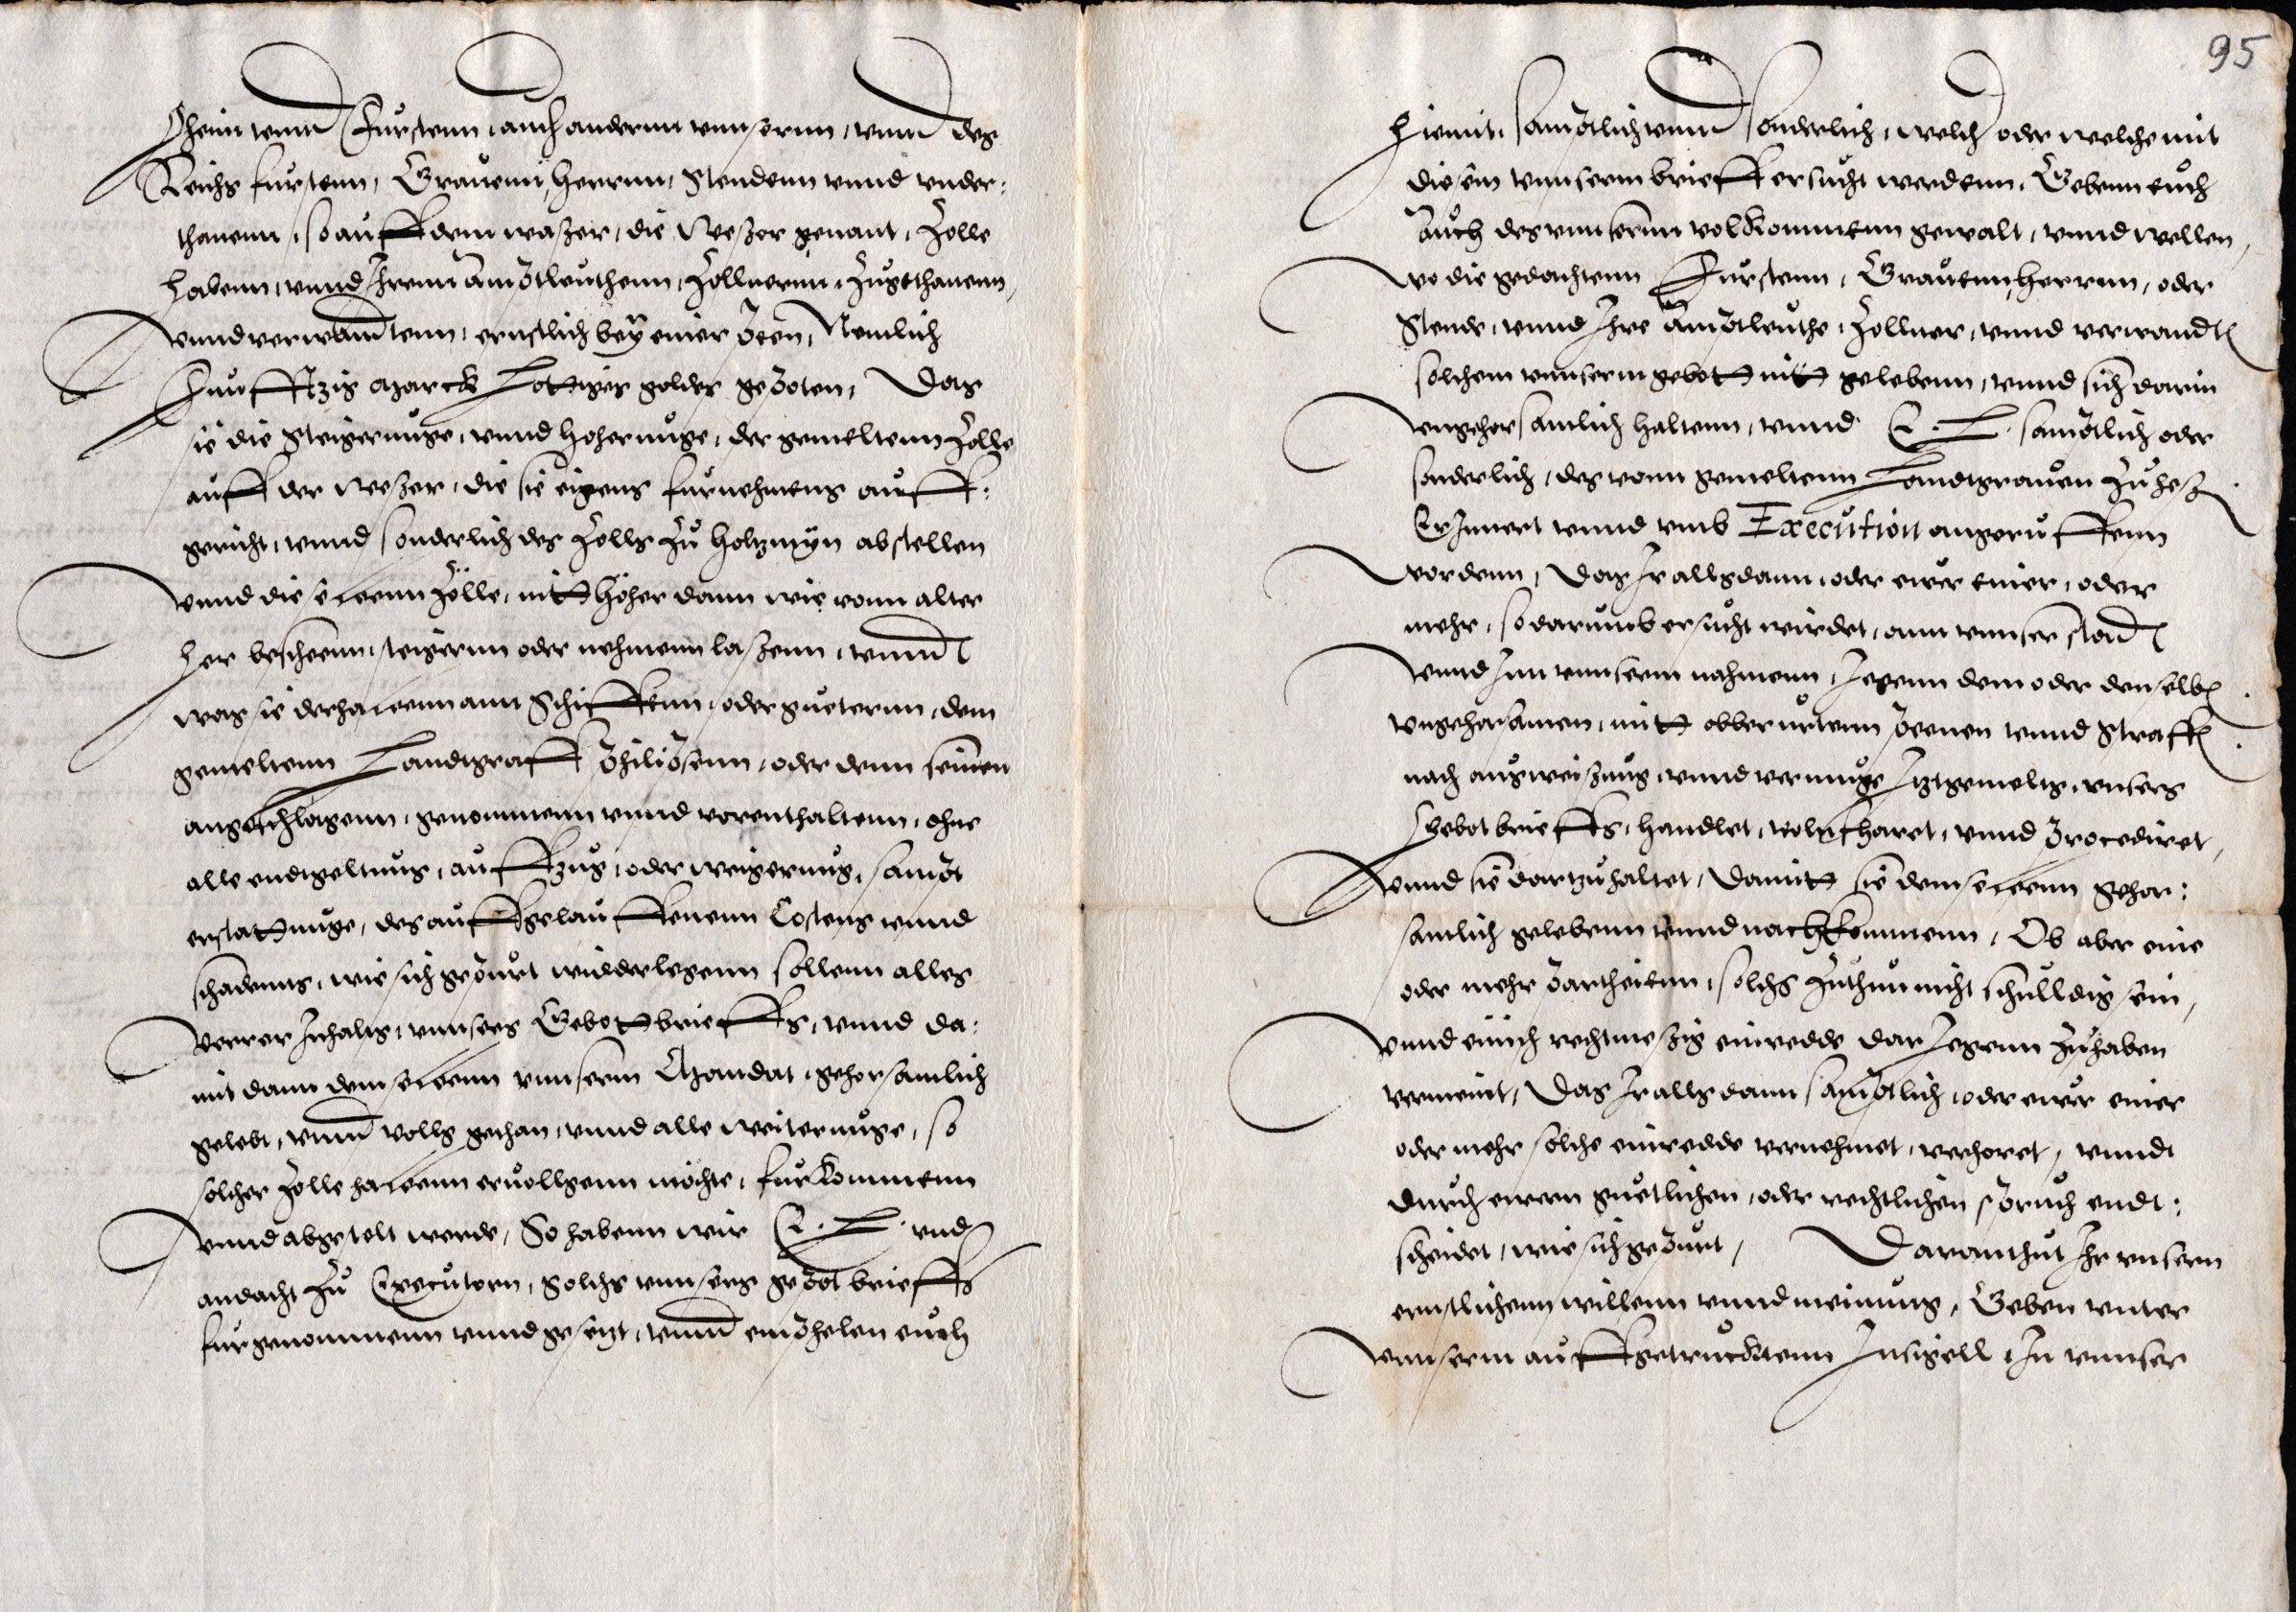 Oheim vnnd Furstenn, auch andernn vnnsernn, vnnd des
Reichs furstenn, Grauenn, Herrnn, Stendenn vnnd vnder:
thanenn, so auff dem waszer, die Weszer genant, Zolle
habenn, vnnd Ihrenn Amptleuthenn, Zollnernn, Zugethanenn,
vnnd verwanntenn, ernstlich bey einer peen, Nemlich
Funfftzig Marck Lottiges goldes gepoten, Das
sie die Steigerunge, vnnd hoherunge, der gemeltenn Zolle
auff der Weszer, die sie eigens furnehmens auff:
gericht, vnnd sonderlich des Zolls zu Holtzmyn abstellen
vnnd die selbenn Zölle, nitt höher dann wie vonn alter
her bescheenn, steigernn oder nehmenn laszenn, vnnd
was sie derhalbenn ann Schiffenn, oder guetternn, dem
gemeltenn Landtgraff Philipsenn, oder denn seinen
angeschlagenn, genommenn vnnd vorenthaltenn, ohne
alle endtgeltnus, auffzug, oder weigerung, sampt
erstattunge, des auffgelauffenenn Costens vnnd
schadenns, wie sich gepurt widderlegenn sollenn alles
verrer Inhalts, vnnsers Gebottbrieffs, vnnd da:
mit dann dem selbenn vnnserm Mandat, gehorsamlich
gelebt, vnnd volls gethan, vnnd alle weiterunge, so
solcher Zolle halbenn eruollgenn möchte, furkommenn
vnnd abgestelt werde, So habenn wir E. L. vnd
andacht zu Executorn, Solchs vnnsers gepot brieffs
furgenommenn vnnd gesetzt, vnnd emphelen euch
95
hiemit, samptlich vnnd sonderlich, welch oder welche mit
diesem vnnserm brieff ersucht werdenn, Gebenn euch
Auch des vnnsernn volkommenn gewalt, vnnd wellen,
wo die gedachtenn Furstenn, Grauenn, Herrnn, oder
Stende, vnnd Ihre Amptleuthe, Zollner, vnnd verwandt
solchem vnnserm gebott nitt gelebenn, vnnd sich darin
vngehorsamlich haltenn, vnnd E. L. samptlich oder
sonderlich, des vonn gemeltenn Landtgrauen zu hesz
Erinnert vnnd vmb Execution angeruffenn
wordenn, Das Ir allsdann, oder ewer einer, oder
mehr, so darumb ersucht wirdet, ann vnnser stad
vnnd Inn vnnserm nahmenn, Jegenn dem oder denselb
vngehorsamen, mitt obberurtenn peenen vnnd Straff
nach auszweisung, vnnd vermuge Itztgemelts, vnsers
Gebot brieffs, handlet, volnfharet, vnnd procediret,
vnnd sie dartzu haltet, Damitt sie dem selbenn gehor:
samlich gelebenn vnnd nachkommenn, Ob aber eine
oder mehr partheienn, solchs zuthun nicht schulldig sein,
vnnd einich rechtmeszig einredde dar Jegenn zuhaben
vermeint, Das Ir allsdann samptlich, oder ewer einer
oder mehr solche einredde vernehmet, verhoret, vnndt
durch ewern guetlichen, oder rechtlichen spruch endt:
scheidet, wie sich gepurt, Daranthut Ihr vnsern
ernstlichenn willenn vnnd meinung, Geben vnter
vnnserm auffgetrucktenn Insigell, In vnnser